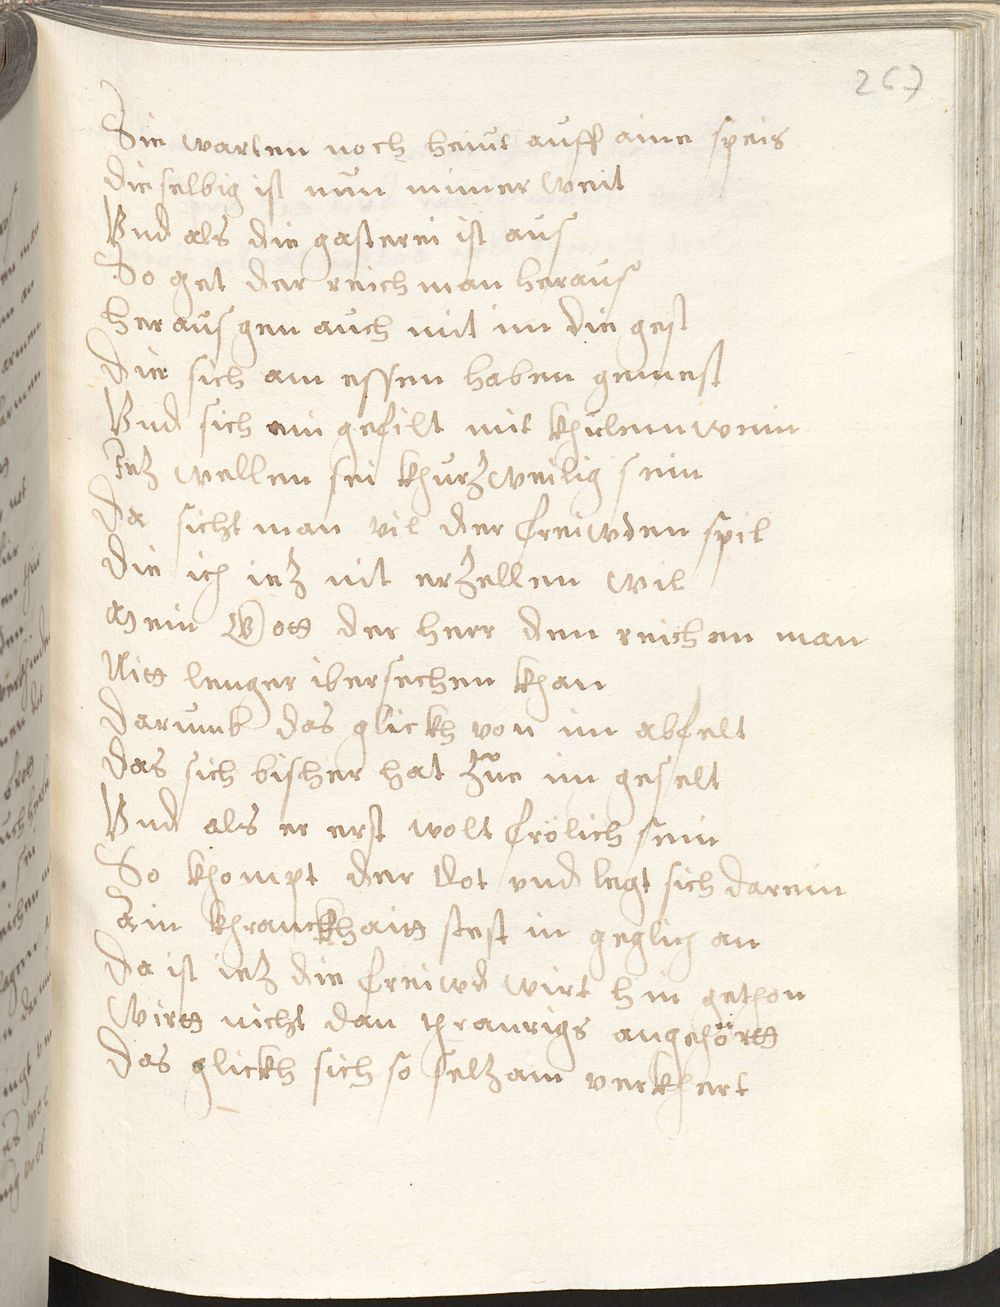 267
Sie warten noch heiut auff aine speis
Dieselbig ist nun nimer weit
Vnd als die gasterei ist aus
So get der reich man heraus
Heraus gen auch mit im die gest
Die sich am essen haben gemest
Vnd sich angefilt mit khielem wein
Iez wellen sei khurzweilig sein
Da sicht man vil der freiwden spil
Die ich iez nit erzellen wil
Mein Gott der herr dem reichen man
Nitt lenger ibersechen khan
Darumb das glickh von im abfelt
Das sich bischer hat zue im geselt
Vnd als er erst wolt frölich sein
So khompt der Dot vnd legt sich darein
Ain khranckhaitt stest in geglich an
Da ist iez die freiwd wirt hin gethon
Wirtt nicht dan thraurigs angehörtt
Das glickh sich so selzam verkhert